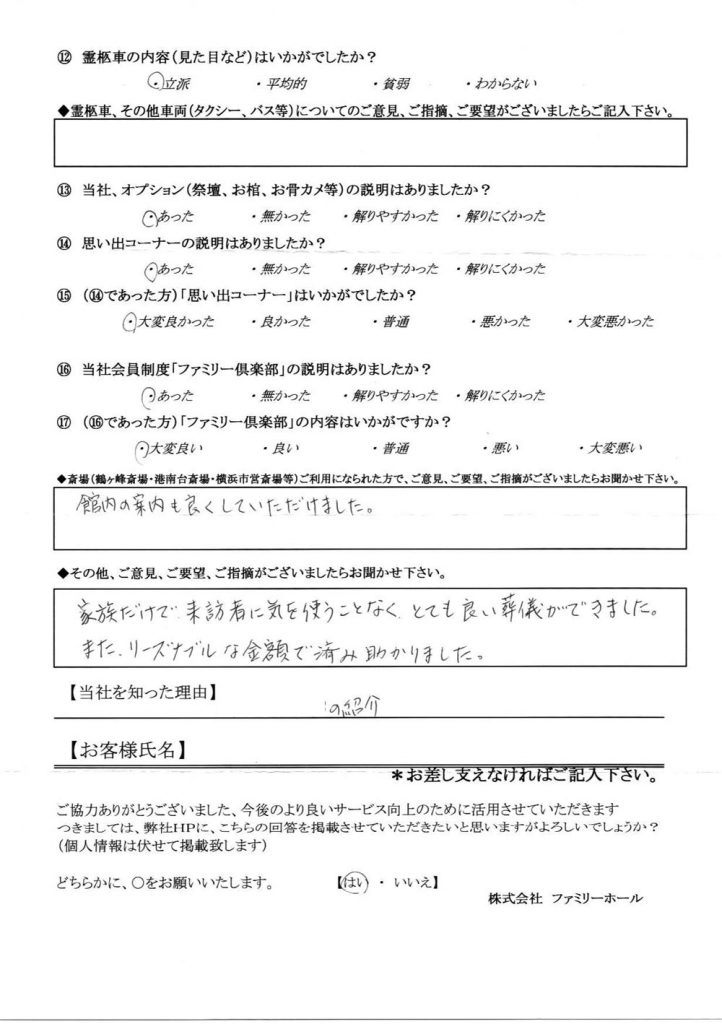 ⑫ 霊柩車の内容（見た目など）はいかがでしたか？
・立派 ・平均的 ・貧弱 ・わからない
◆霊柩車、その他車両（タクシー、バス等）についてのご意見、ご指摘、ご要望がございましたらご記入下さい。
⑬ 当社、オプション（祭壇、お棺、お骨カメ等）の説明はありましたか？
・あった ・無かった ・解りやすかった ・解りにくかった
⑭ 思い出コーナーの説明はありましたか？
・あった ・無かった ・解りやすかった ・解りにくかった
⑮ （⑭であった方）「思い出コーナー」はいかがでしたか？
・大変良かった ・良かった ・普通 ・悪かった ・大変悪かった
⑯ 当社会員制度「ファミリー倶楽部」の説明はありましたか？
・あった ・無かった ・解りやすかった ・解りにくかった
⑰ （⑯であった方）「ファミリー倶楽部」の内容はいかがですか？
・大変良い ・良い ・普通 ・悪い ・大変悪い
◆斎場（鶴ヶ峰斎場・港南台斎場・横浜市営斎場等）ご利用になられた方で、ご意見、ご要望、ご指摘がございましたらお聞かせ下さい。
館内の案内も良くしていただけました。
◆その他、ご意見、ご要望、ご指摘がございましたらお聞かせ下さい。
家族だけで、来訪者に気を使うことなく、とても良い葬儀ができました。
また、リーズナブルな金額で済み助かりました。
【当社を知った理由】
の紹介
【お客様氏名】
＊お差し支えなければご記入下さい。
ご協力ありがとうございました、今後のより良いサービス向上のために活用させていただきます
つきましては、弊社HPに、こちらの回答を掲載させていただきたいと思いますがよろしいでしょうか？
（個人情報は伏せて掲載致します）
どちらかに、○をお願いいたします。 【はい ・ いいえ】
株式会社 ファミリーホール